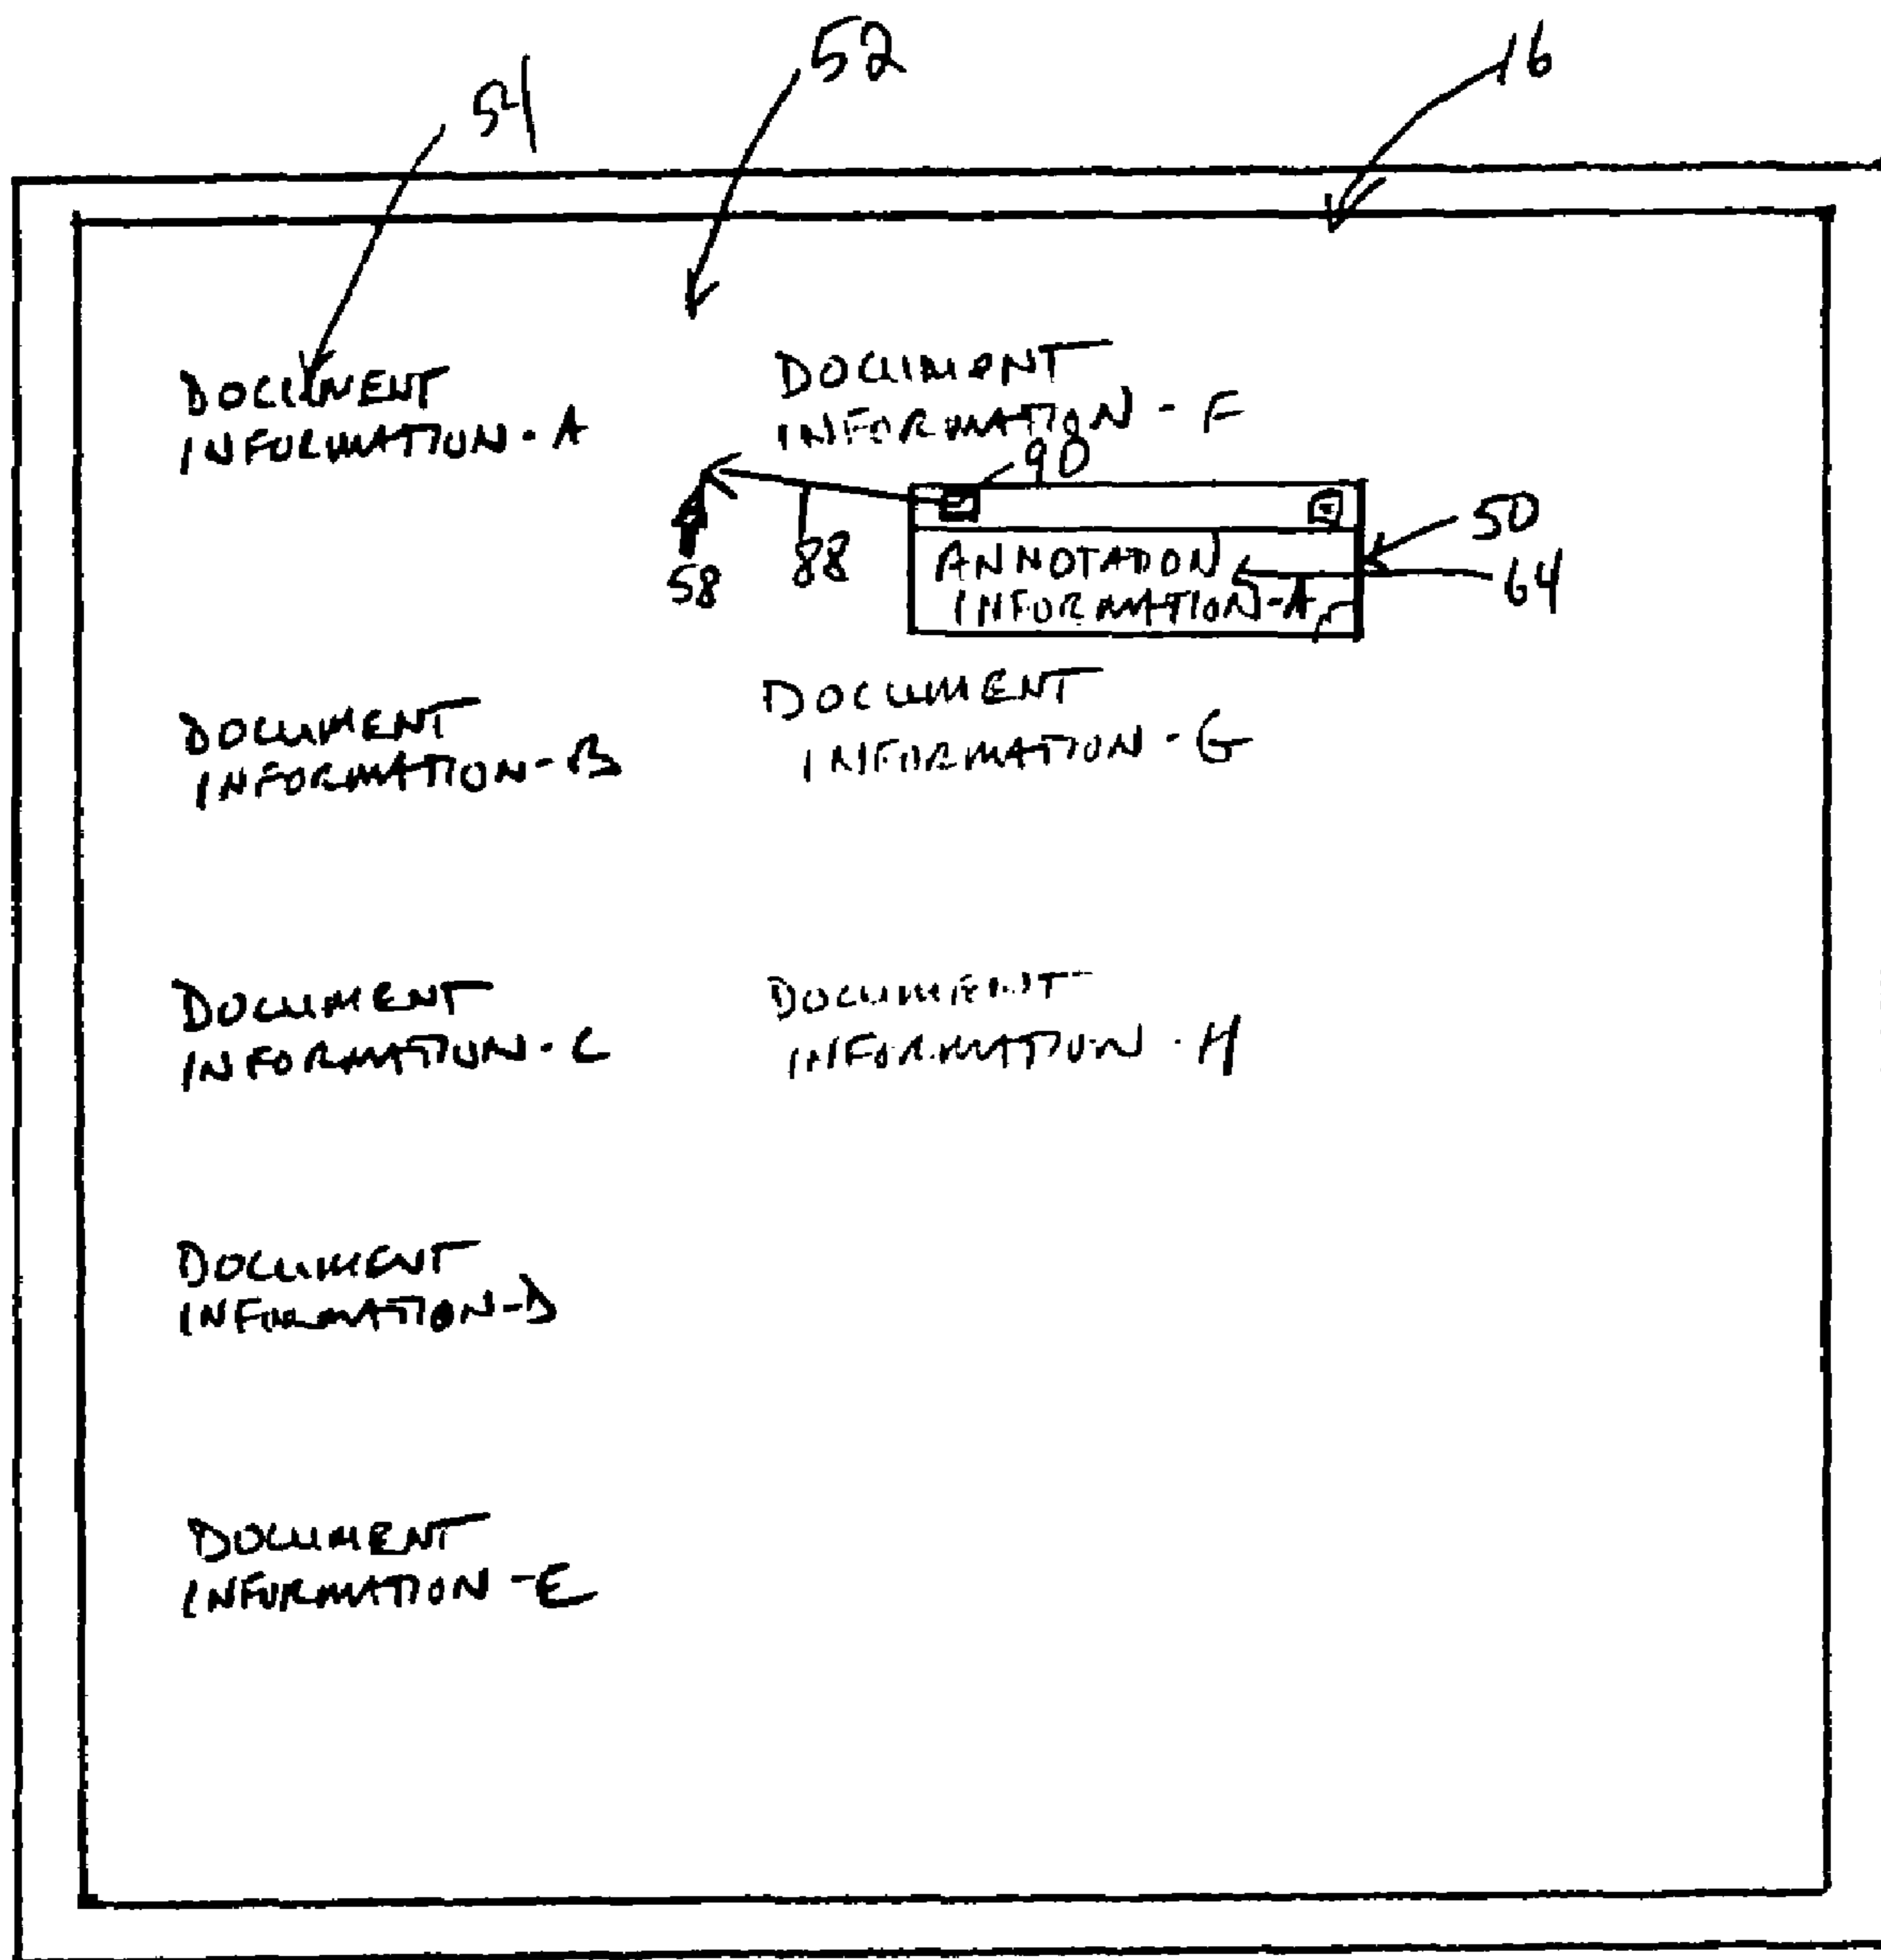 54
52
16
DOCUMENT
INFORMATION-A
DOCUMENT
INFORMATION-F
90
50
58
88
ANNOTATION
INFORMATION-A
64
DOCUMENT
INFORMATION-B
DOCUMENT
INFORMATION-G
DOCUMENT
INFORMATION-C
DOCUMENT
INFORMATION-H
DOCUMENT
INFORMATION-D
DOCUMENT
INFORMATION-E